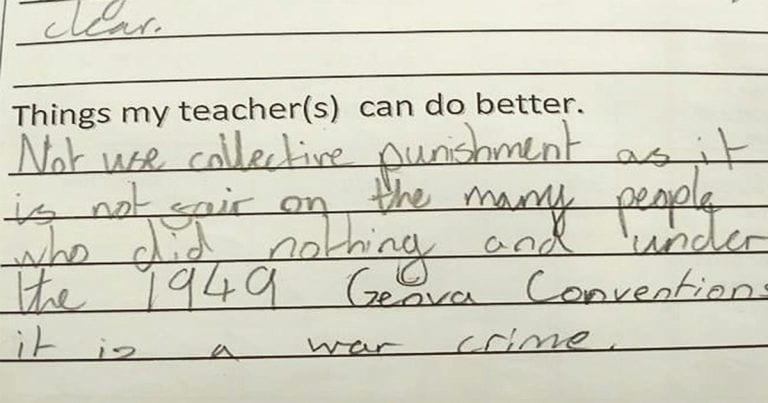 clear.
Things my teacher(s) can do better.
Not use collective punishment as it
is not fair on the many people
who did nothing and under
the 1949 Geneva Conventions
it is a war crime.